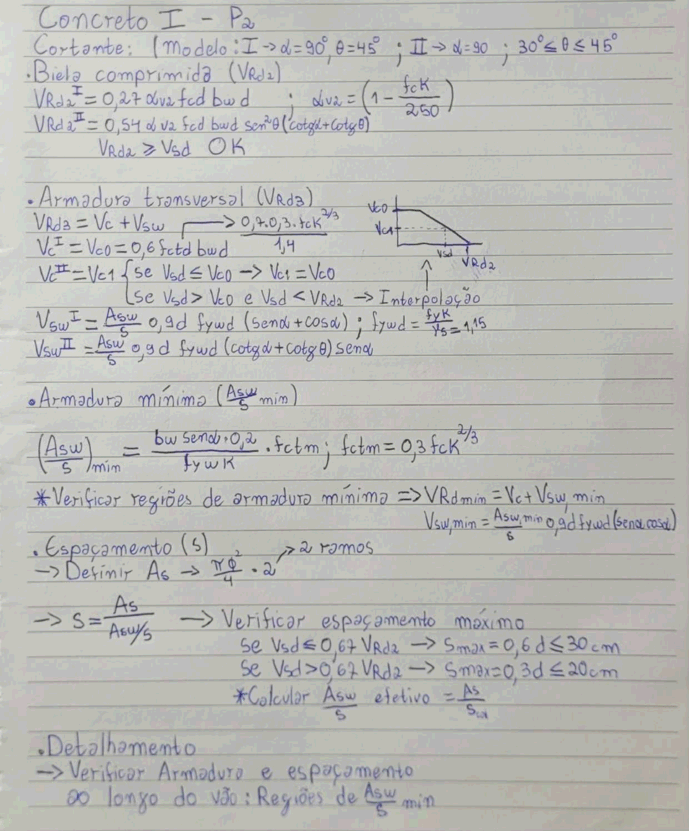 Concreto I - P2
Cortante: (Modelo: I → α=90°, θ=45° ; II → α=90 ; 30° ≤ θ ≤ 45°
• Biela comprimida (VRd2)
VRd2^I = 0,27 αv2 fcd bw d ; αv2 = (1 - fck/250)
VRd2^II = 0,54 αv2 fcd bw d sen²θ (cotgα + cotgθ)
VRd2 ≥ Vsd OK
• Armadura transversal (VRd3)
VRd3 = Vc + Vsw → 0,7.0,3.fck^2/3 / 1,4
Vc^I = Vc0 = 0,6 fctd bw d
Vc^II = Vc1 { se Vsd ≤ Vc0 → Vc1 = Vc0
se Vsd > Vc0 e Vsd < VRd2 → Interpolação
Vc0
Vc1
Vsd
VRd2
Vsw^I = Asw/s 0,9d fywd (senα + cosα) ; fywd = fyk/γs = 1,15
Vsw^II = Asw/s 0,9d fywd (cotgα + cotgθ) senα
• Armadura mínima (Asw/s min)
(Asw/s)min = bw senα . 0,2 / fywk . fctm ; fctm = 0,3 fck^2/3
* Verificar regiões de armadura mínima ⇒ VRdmin = Vc + Vsw, min
Vsw, min = Asw, min/s 0,9d fywd (senα cosα)
. Espaçamento (s)
→ Definir As → πΦ²/4 . 2 → 2 ramos
→ s = As / Asw/s → Verificar espaçamento máximo
se Vsd ≤ 0,67 VRd2 → Smax = 0,6d ≤ 30cm
se Vsd > 0,67 VRd2 → Smax = 0,3d ≤ 20cm
* Calcular Asw/s efetivo = As/s
. Detalhamento
→ Verificar Armadura e espaçamento
ao longo do vão: Regiões de Asw/s min